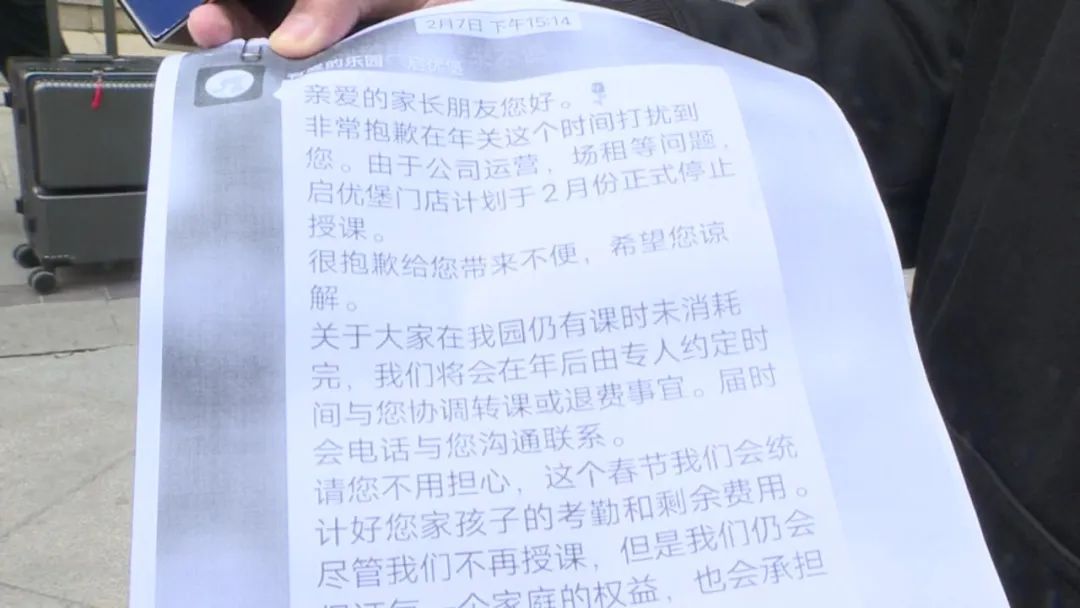 2月7日 下午15:14
的乐园 启优堡
亲爱的家长朋友您好。
非常抱歉在年关这个时间打扰到
您。由于公司运营，场租等问题，
启优堡门店计划于2月份正式停止
授课。
很抱歉给您带来不便，希望您谅
解。
关于大家在我园仍有课时未消耗
完，我们将会在年后由专人约定时
间与您协调转课或退费事宜。届时
会电话与您沟通联系。
请您不用担心，这个春节我们会统
计好您家孩子的考勤和剩余费用。
尽管我们不再授课，但是我们仍会
每一个家庭的权益，也会承担